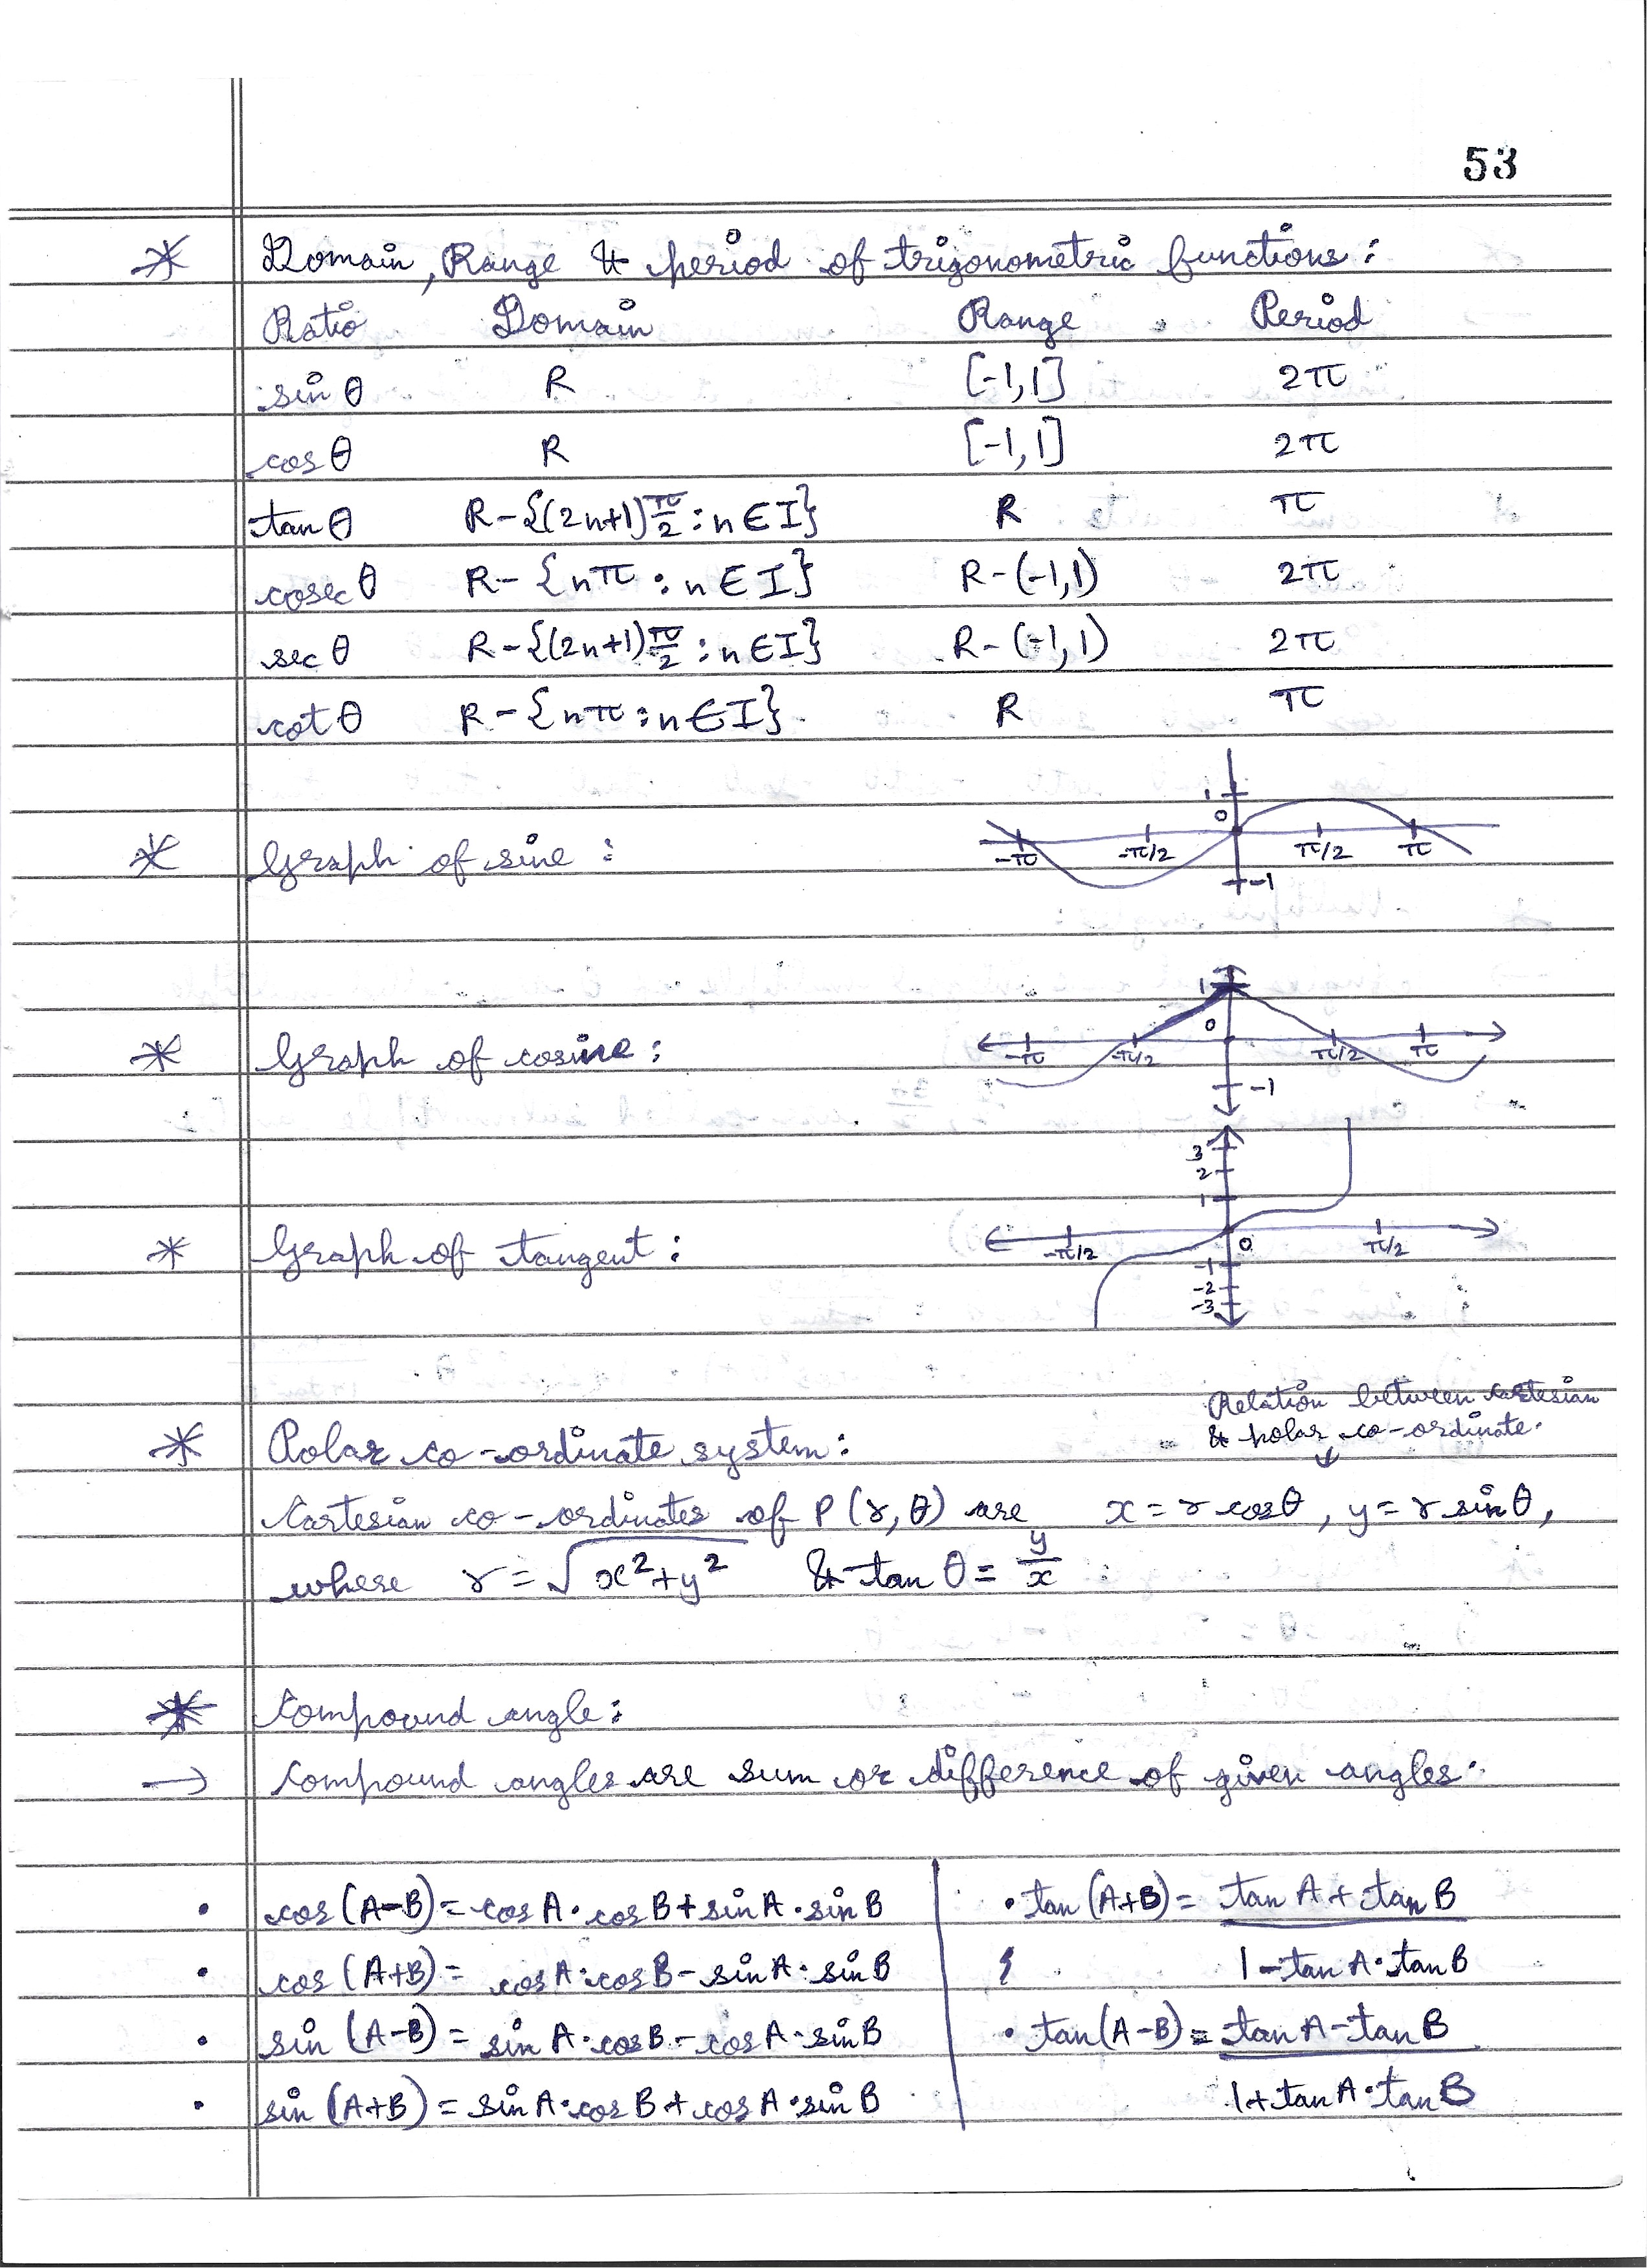 53
Domain, Range & period of trigonometric functions:
Ratio Domain Range Period
sin θ R [-1,1] 2π
cos θ R [-1,1] 2π
tan θ R-{(2n+1)π/2 : n∈I} R π
cosec θ R-{nπ : n∈I} R-(-1,1) 2π
sec θ R-{(2n+1)π/2 : n∈I} R-(-1,1) 2π
cot θ R-{nπ : n∈I} R π
Graph of sine :
1
0
-π -π/2 π/2 π
-1
Graph of cosine :
1
0
-π -π/2 π/2 π
-1
Graph of tangent :
3
2
1
-π/2 0 π/2
-1
-2
-3
Relation between cartesian
& polar co-ordinate.
↓
Polar co-ordinate system :
Cartesian co-ordinates of P(r, θ) are x = r cosθ, y = r sinθ,
where r = √x²+y² & tan θ = y/x
Compound angle :
→ Compound angles are sum or difference of given angles.
• cos (A-B) = cos A · cos B + sin A · sin B
• cos (A+B) = cos A · cos B - sin A · sin B
• sin (A-B) = sin A · cos B - cos A · sin B
• sin (A+B) = sin A · cos B + cos A · sin B
• tan (A+B) = tan A + tan B
1 - tan A · tan B
• tan (A-B) = tan A - tan B
1 + tan A · tan B